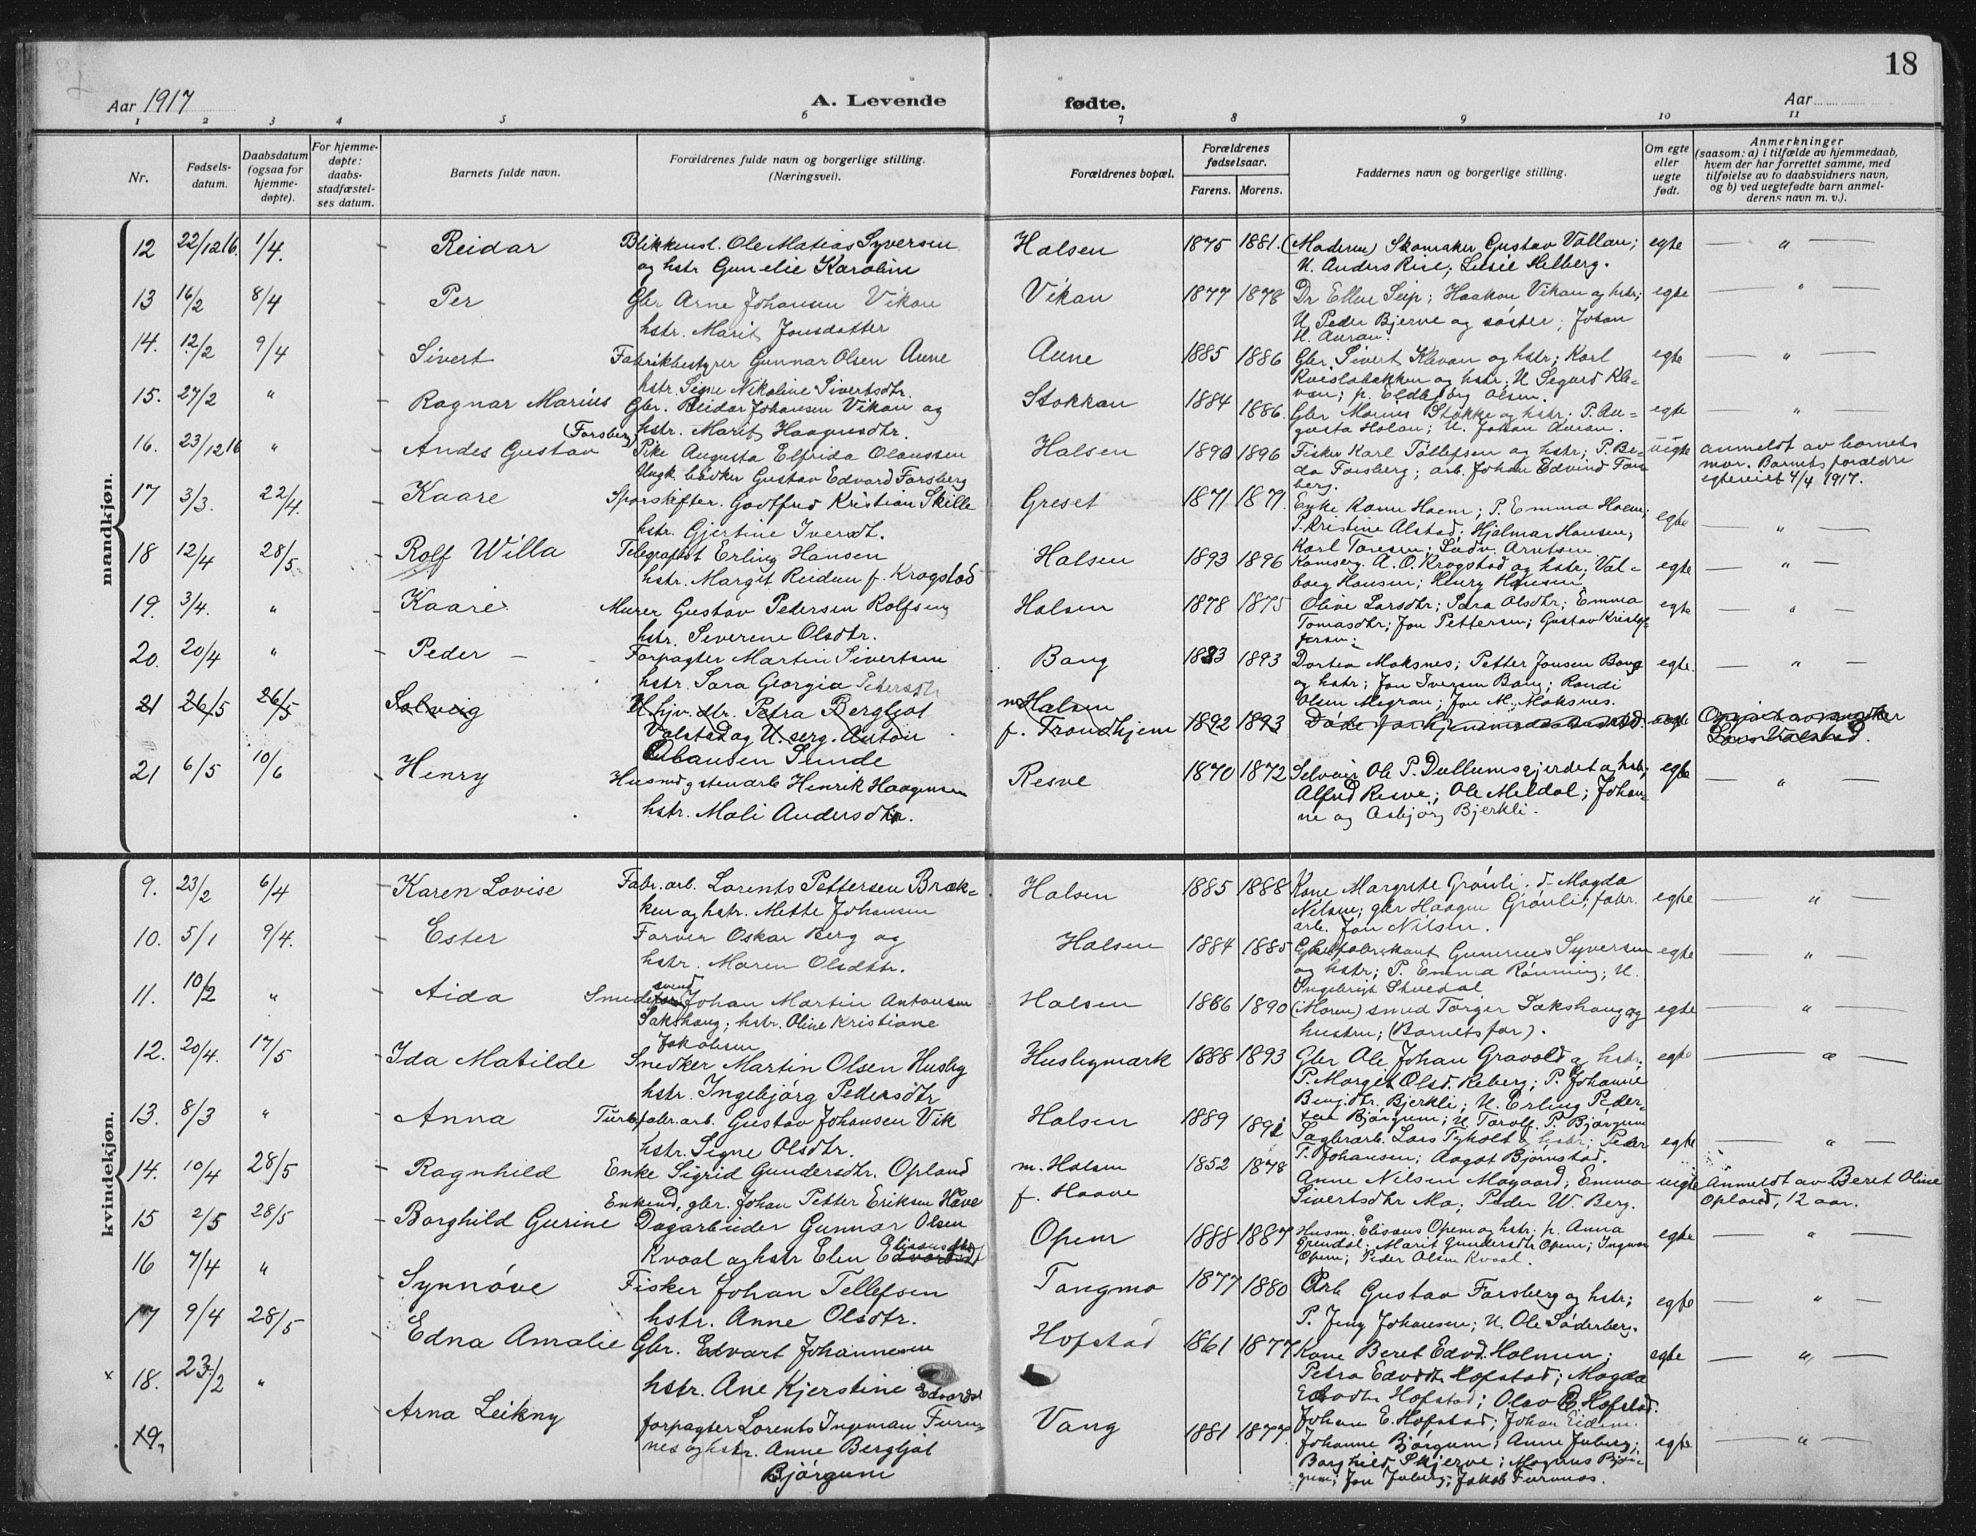 18
Aar 1917
A. Levende
fødte.
Aar
1 2 3 4 5 6 7 8 9 10 11
Nr.
Fødsels-
datum.
Daabsdatum
(ogsaa for
hjemme-
døpte).
For hjemme-
døpte:
daabs-
stadfæstel-
ses datum.
Barnets fulde navn.
Forældrenes fulde navn og borgerlige stilling.
(Næringsvei).
Forældrenes bopæl.
Forældrenes
fødselsaar.
Farens. Morens.
Faddernes navn og borgerlige stilling.
Om egte
eller
uegte
født.
Anmerkninger
(saasom: a) i tilfælde av hjemmedaab,
hvem der har forrettet samme, med
tilføielse av to daabsvidners navn,
og b) ved uegtefødte barn anmel-
derens navn m. v.).
mandkjøn.
12 22/12 16. 1/4. Reidar Blikkensl. Ole Matias Syversen Halsen 1875 1881. (Moderen) Skomaker Gustav Vollan; egte
og hstr Gunelie Karoline U. Anders Rise;
13 16/2 8/4 Per Gbr Arne Johansen Vikan Vikan 1877 1878 Dr Ellen Seip; Haakon Vikan og hstr; egte
hstr. Marit Jonsdatter U. Peder Bjerve og søster; Johan
U. Auran.
14. 12/2 9/4 Sivert Fabrikbestyrer Gunnar Olsen Aune Aune 1885 1886 Gbr. Sivert Klevan og hstr; Karl egte
hstr Signe Nikoline Sivertsdtr. Kvislabakken og hstr; U Segurd Kle-
van; p. Eldbjørg Olsen.
15. 27/2 " Ragnar Marius Gbr. Reidar Johansen Vikan og Stokkan 1884 1886. Gbr Marius Stokke og hstr; P. Au- egte
hstr. Marit Haagensdtr. gusta Holan; U. Johan Auran.
16. 23/12 16 " Andes Gustav (Forsberg) Pike Augusta Elfrida Olaussen Halsen 1890 1896 Fisker Karl Tollefsen og hstr; P. Be- uegte anmeldt av barnets
Ungk. bødker Gustav Edvard Forsberg da Forsberg; arb. Johan Edvind Fors mor. Barnets forældre
berg. egteviet 4/4 1917.
17 3/3. 22/4. Kaare Sporskifter. Godtfred Kristian Skille Greset 1871 1871. Enke Hoem; P. Emma Hoem; egte
hstr. Gjertine Iversdt. P. Kristine Alstad; Hjalmar Hansen;
Karl Toresen; Ludv. Arntsen
18 12/4 28/5. Rolf Willa Telegrafist Erling Hansen Halsen 1893 1896 A. O. Krogstad og hstr; Val- egte
hstr. Margit Reidun f. Krogstad borg Hansen; Henry Hansen
19. 3/4. " Kaare Murer Gustav Pedersen Rolfseng Halsen 1878 1875 Olive Larsdtr; Sara Olsdtr; Emma egte
hstr. Severine Olsdtr. Tomasdtr; Jon Pettersen; Gustav Kristof-
fersen.
20. 20/4 " Peder Forpagter Martin Sivertsen Bang 1883 1893 Dortea Moksnes; Petter Jonsen Bang egte.
hstr. Sara Georgia Petersdtr og hstr; Jon Iversen Bang; Randi
Olsen Megran; Jon M. Moksnes.
21 26/5 26/5 Solveig U. hjv. dtr. Petra Bergljot m Halsen 1892 1893 egte
Valstad og U. serg. Anton f. Trondhjem Valstad.
Johansen Sunde
21 6/5 10/6 Henry Husmd, og stenarb Henrik Haagensen Resve 1870 1872 Selveier Ole P. Dullumsgjerdet og hstr; egte
hstr. Mali Andersdtr. Alfred Resve; Ole Meldal; Johan-
ne og Asbjørg Bjerkli.
kvindekjøn.
9. 23/2 6/4 Karen Lovise Fabr. arb. Lorents Pettersen Bræk- Halsen 1885 1888 Kone Margrete Grønli. d- Magda egte
ken og hstr. Mette Johansen Nilsen; gbr Haagen Grønli; fabr.
arb. Jon Nilsen.
10. 5/1 9/4. Ester Farver Oskar Berg og Halsen 1884 1885 Gunerius Syversen egte
hstr. Maren Olsdtr. og hstr; P. Emma Rønning; U.
Ingebrigt Stuedal
11. 10/2 " Aida Smedesvend Johan Martin Antonsen Halsen 1886 1890 (Moren) smed Torger Sakshaug og egte
Sakshaug; hstr. Oline Kristiane hustru; (Barnets far).
Jakobsen
12. 20/4. 17/5 Ida Matilde Snedker Martin Olsen Husby Husbymark 1888 1893 Gbr Ole Johan Gravold og hstr; egte
hstr. Ingebjørg Pedersdtr P. Marget Olsd. Reberg; P. Johanne
Benj.dtr. Bjerkli; U. Erling Peder-
sen Bjørgum; U Torolf P. Bjørgum
13. 8/3 " Anna fabr. arb. Gustav Johansen Vik Halsen 1889 1891 Faglærarb. Lars Tyholt og hstr; Peder egte
hstr. Signe Olsdtr. T. Johansen; Aagot Bjørnstad.
14. 10/4 28/5 Ragnhild Enke Sigrid Gundersdtr. Opland m. Halsen 1852 1878 Anne Nilsen Magaard; Emma uegte Anmeldt av Beret Oline
Enkemd, gbr. Johan Petter Eriksen Have f. Haave Sivertsdtr Mo; Peder W. Berg. Opland, 12 aar.
15 2/5 28/5 Borghild Gurine Dagarbeider Gunnar Olsen Opem 1888 1887 Husm. Elisæus Opem og hstr. p. Anna egte
Kvaal og hstr Elen Elisæusdtr Grendal; Marit Gundersdtr Opem; Ingvar
Opem; Peder Olsen Kvaal.
16 7/4 " Synnøve Fisker Johan Tellefsen Tangmo 1877 1880 Arb Gustav Forsberg og hstr; egte
hstr. Anne Olsdtr. P. Jeny Johansen; U. Ole Søderberg.
17 9/4 28/5 Edna Amalie Gbr. Edvart Johannesen Hofstad 1861 1877 Kone Beret Edvd. Holmen; egte
hstr. Ane Kjerstine Edvardsd Petra Edvdtr Hofstad; Magda
Edvdtr Hofstad; Olav E Hofstad.
Johan E. Hofstad; Johan Eidem.
x 18. 23/2 " Arna Leikny forpagter Lorents Ingeman Furu- Vang 1881 1877. Johanne Bjørgum; Anne Juberg; egte
nes og hstr. Anne Bergljot Borghild Skjerve; Magnus Bjør-
Bjørgum gum; Jon Juberg; Jakob Furunes.
19.